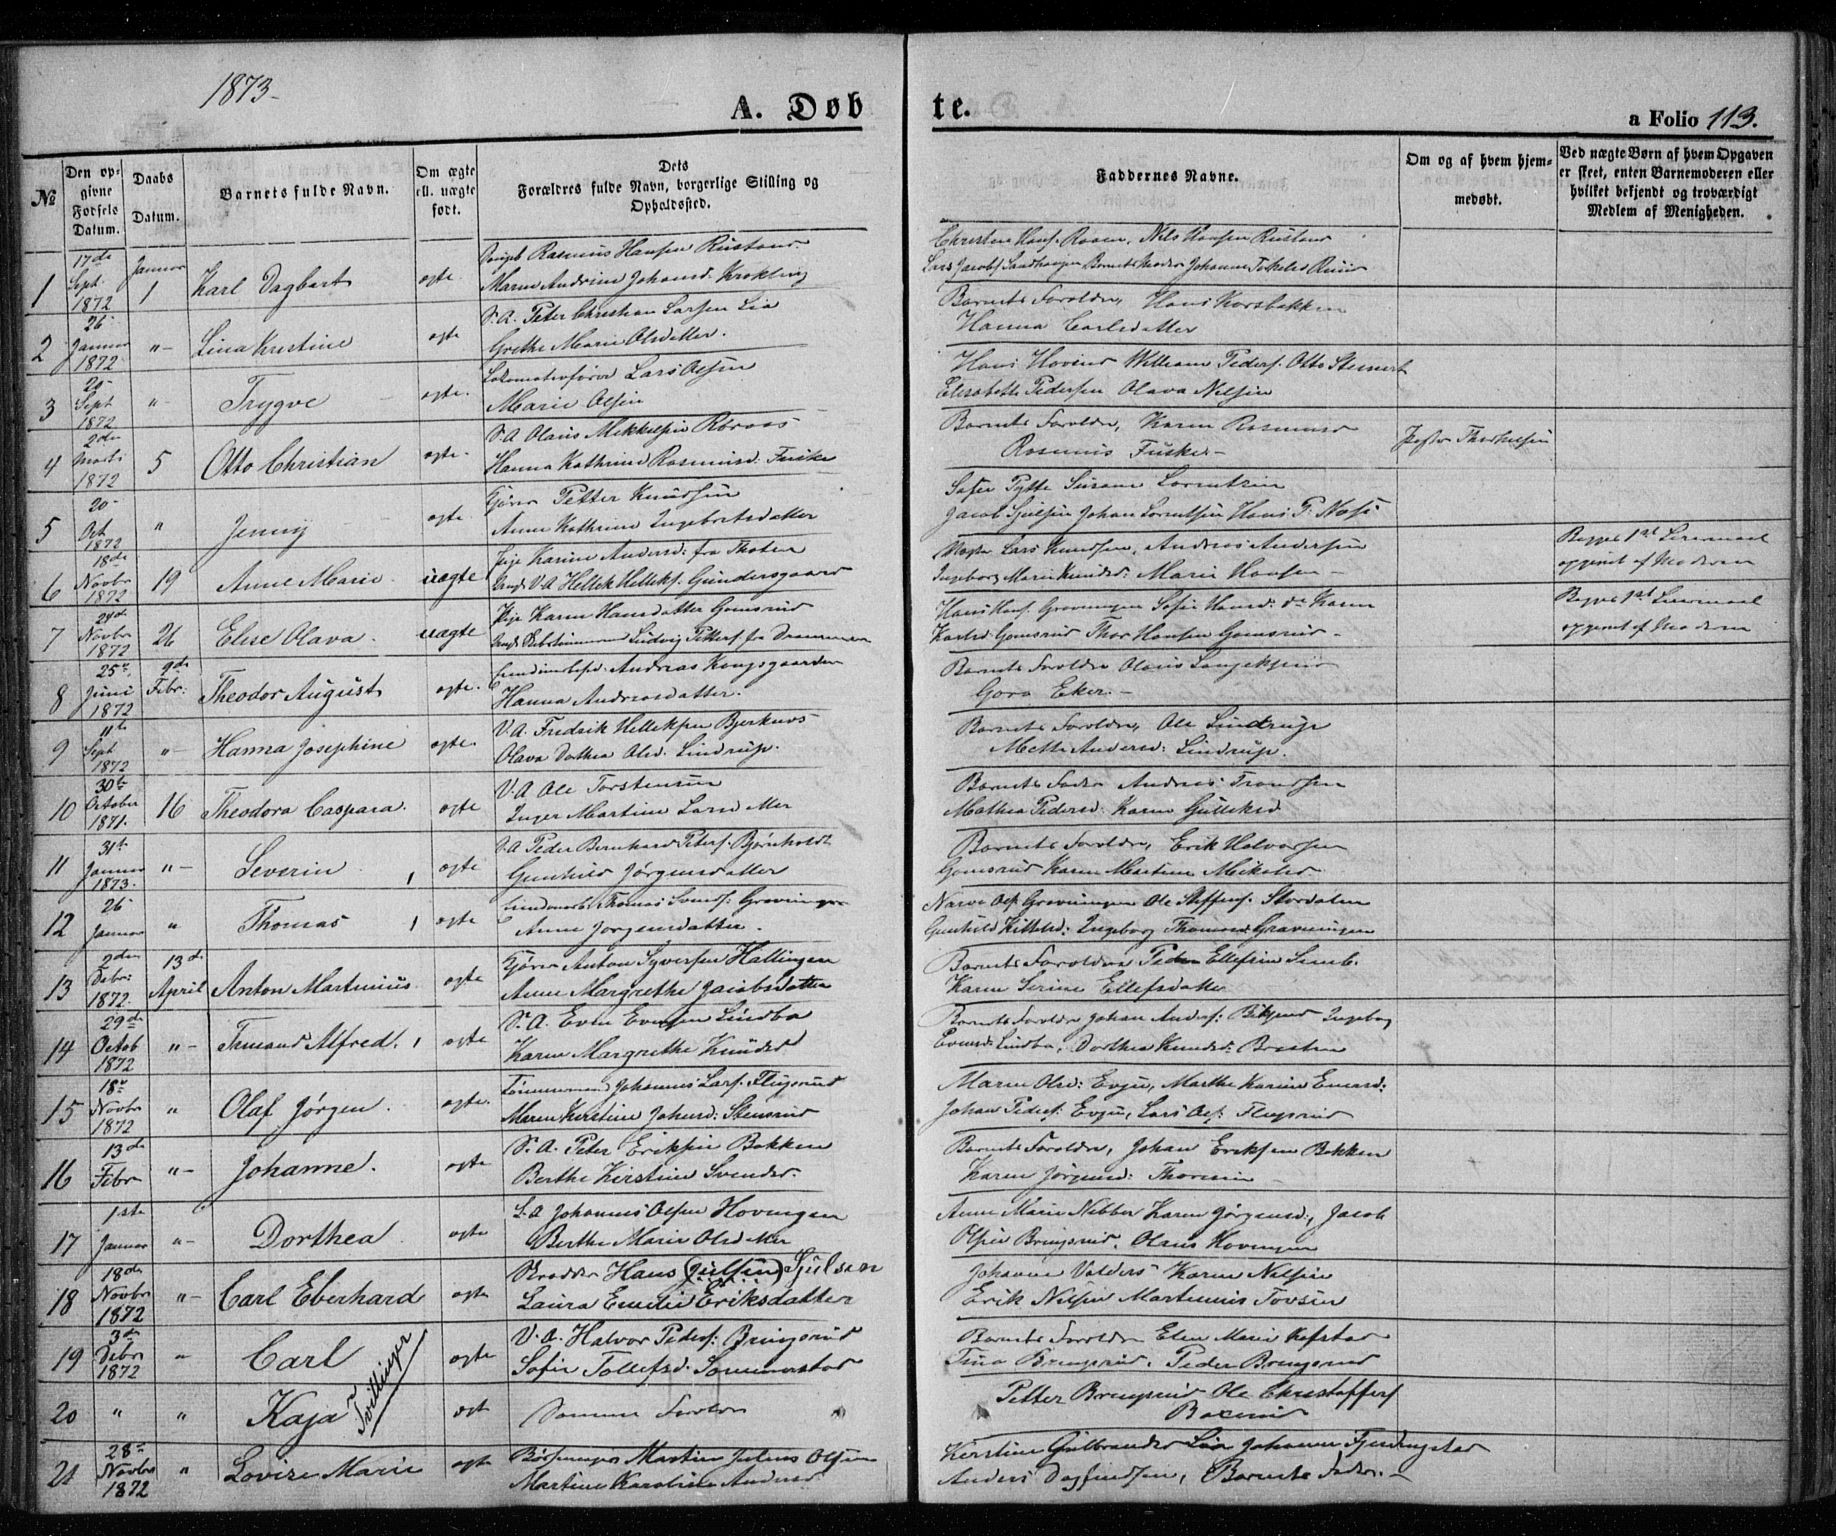 1873-
A. Døb
te.
a Folio 113.
№
Den op-
givne
Fødsels
Datum.
Daabs
Datum.
Barnets fulde Navn.
Om ægte
ell. uægte
født.
Dets
Forældres fulde Navn, borgerlige Stilling og
Opholdssted.
Faddernes Navne.
Om og af hvem hjem-
medøbt.
Ved uægte Børn af hvem Opgaven
er skeet, enten Barnemoderen eller
hvilket bekjendt og troværdigt
Medlem af Menigheden.
1
17de
Sept
1872
Januar
1
Karl Dagbart
ægte
Rasmus Hansen Rustand
Maren Andrine Johansd. Krekling
Christen Hans. Nils Hansen Rustand
Lars Jacobs. Sandhaugen Barnets Moder Johanne
2
26
Januar
1872
"-
Lina Kristine
ægte
S.A. Peter Christian Larsen Lia
Grethe Marie Olsdatter.
Barnets Forældre, Hans Korsbakken
Hanna Carlsdatter
3
20
Sept
1872
"
Trygve
ægte.
Lokomotivfører Lars Olsen
Marie Olsen
Hans William Peders. Otto Steinert
Elisabeth Pedersen Olava Nilsen
4
2den
Marts
1872
5
Otto Christian
ægte.
S.A Olaus Mikkelsen Røraas
Hanna Kathrine Rasmusd. Fuske
Barnets Forældre, Karen Rasmusd
Rasmus Fusker-
5
20-
Oct
1872
"
Jenny
ægte
Petter Knudsen
Anne Kathrine Ingebretsdatter
Sofie Pytte Susane Lorentzen
Jacob Johan Lorentsen Hans P. Næss
6
18de
Novbr
1872
19
Anne Marie.
uægte
Pige Karine Andersd: fra Thoten
Ungk V.A Hellik Helliks. Gundersgaard
Lars Knudsen, Andreas Andersen
Ingeborg Marie Knudsd: Marie Hansen-
Begges 1ste Leiermaal
opgivet af Moderen
7
24de
Novbr
1872
26
Elise Olava.
uægte
Pige Karen Hansdatter Gomsrud
Ludvig Petters fra Drammen
Hans Hans. Gravningen Sofie Hansd: Karen
Gomsrud Thor Hansen Gomsrud-
Begges 1ste Leiermaal
opgivet af Moderen
8
25de
Juni
1872
9de
Febr:
Theodor August
ægte.
Andreas Kongsgaarden
Hanna Andreasdatter.
Barnets Forældre Olaus
Gora Eker.-
9
11te
Sept
1872
"-
Hanna Josephine
ægte.
V.A. Fredrik Helleksen Bjerknes
Olava Dorthea Olsd. Lindrup.
Barnets Forældre, Ole Lindrup
Mette Andersd: Lindrup.
10
30te
October
1871.
16
Theodora Caspara.
ægte
V.A Ole Torstensen
Inger Martine Larsdatter
Barnets Fader Andreas Transen
Mathea Pedersd: Karen Gulleksd
11
31te
Januar
1873.
"-
Severin
ægte
V.A Peder Bernhard Peters. Bjørnholdt
Gunhild Jørgensdatter
Barnets Forældre, Erik Halvorsen
Gomsrud Karen Martine Mikelsd.
12
26
Januar
"
Thomas
ægte
Thomas Svends: Gravningen
Anne Jørgensdatter.
Narve Ols. Gravningen Ole Steffens. Stordalen
Gunhild Kittelsd: Ingeborg Thomasd Gravningen
13
2den
Debr:
1872.
13de
April
Anton Martinius.
ægte
Kjører Anton Syversen Hallingen
Anne Margrethe Jacobsdatter
Barnets Forældre Peder Ellefsen
Karen Serine Ellefsdatter
14
29de
Octob
1872
"-
Trueand Alfred.
ægte
S.A. Even Evensen Lindbo
Karen Margrethe Knudsd
Barnets Forældre Johan Anders: Ingeborg
Evensd Lindbo, Dorthea Knudsd: Braaten
15
18de
Novbr
1872
"
Olaf Jørgen.
ægte.
Tømmermand Johannes Lars. Flugsrud
Maren Kirstine Johansd: Stensrud
Maren Olsd: Evju, Marthe Karine Enersd:
Johan Peders: Evju, Lars Ols: Flugsrud
16
13de
Febr
"-
Johanne.
ægte
S.A. Peter Eriksen Bakken
Berthe Kirstine Svendsd.
Barnets Forældre, Johan Eriksen Bakken
Karen Jørgensd: Thoresen
17
1ste
Januar
"-
Dorthea
ægte
S.A Johannes Olsen Hovingen
Berthe Marie Olsdatter
Anne Marie Nebber Karen Jørgensd, Jacob
Olsen Bringsrud, Olaus Hovingen
18
18de
Novbr
1872
"-
Carl Eberhard
ægte
Skrædder Hans (Julsen) Gulsen
Laura Emelie Eriksdatter
Johanne Valders Karen Nilsen
Erik Nilsen Martinius Tovsen
19
3de
Debr
1872
"
Carl
Tvillinger
ægte
V.A. Halvor Peders: Bringsrud
Sofie Tollefsd. Sommerstad
Barnets Forældre Elen Marie Kafstad
Tina Bringsrud, Peder Bringsrud
20
"
"
Kaja
ægt
Samme Forældre
Petter Bringsrud Ole Christoffers
21
28de
Novbr
1872
"
Lovise Marie
ægte
Martin Julius Olsen
Martine Karoline Andersd
Kirstine Gulbrandsd Lia Johanne Fjerdingstad
Anders Dagfindsen, Barnets Fader.-